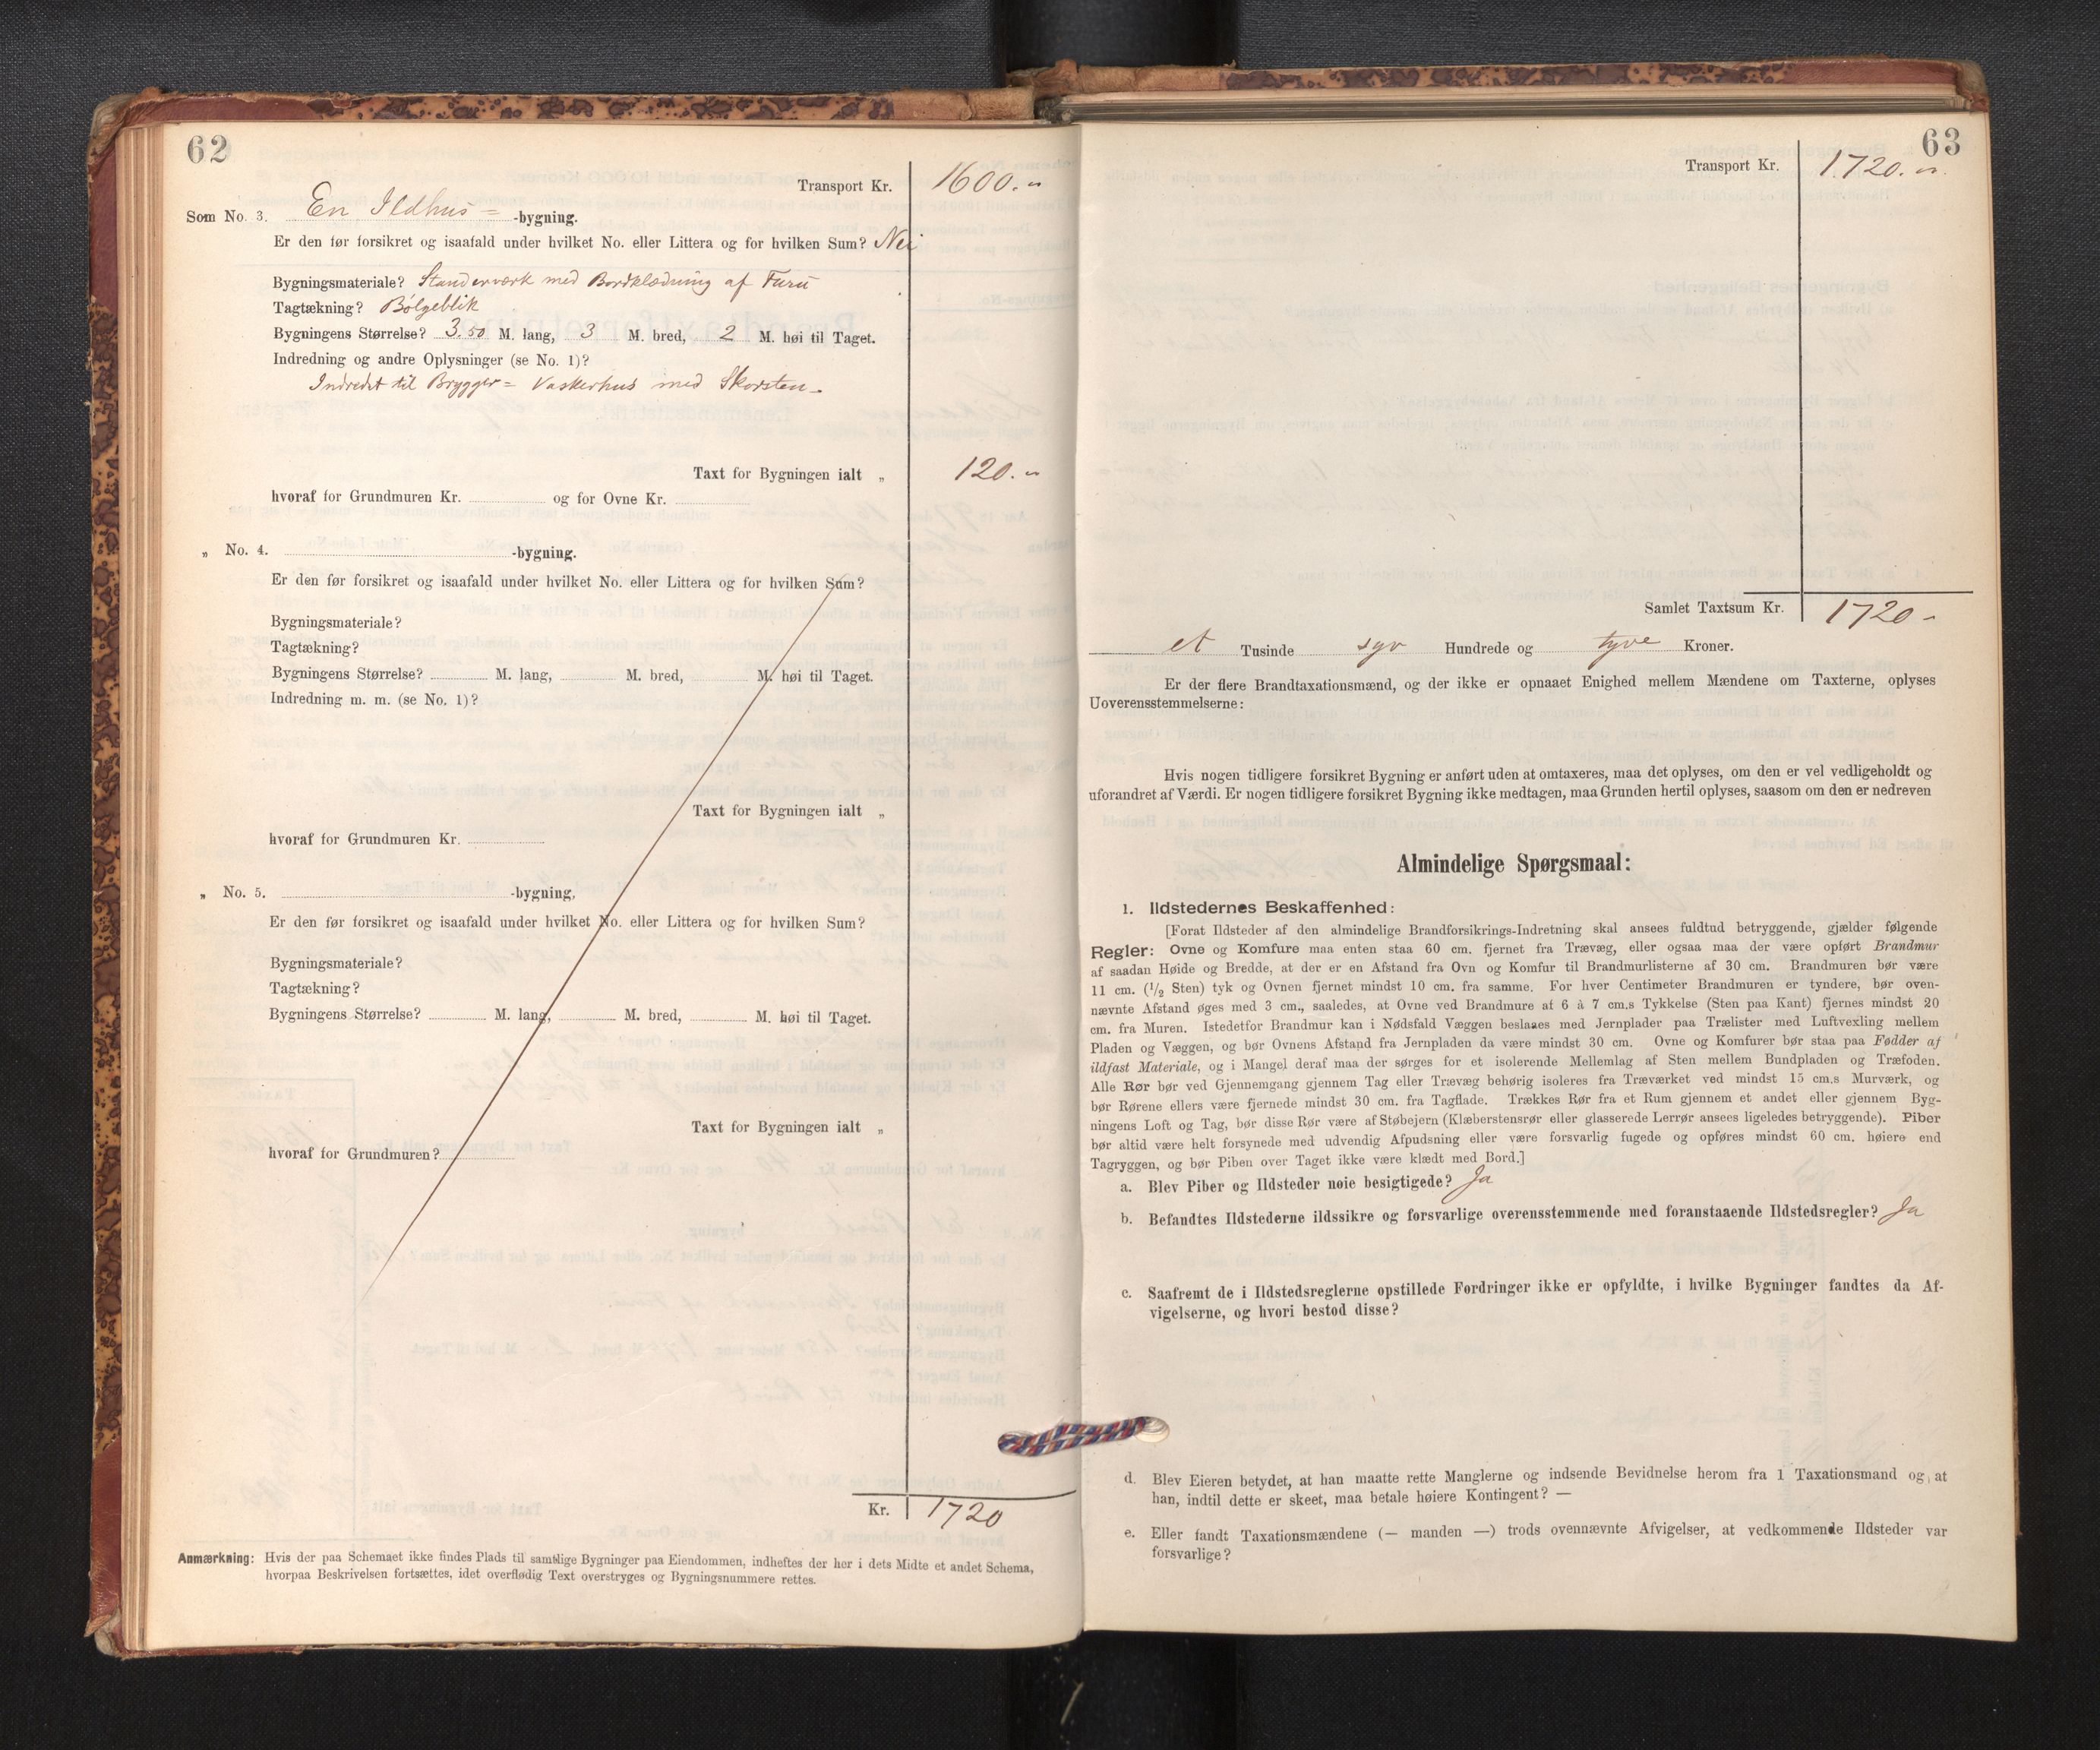 62
Transport Kr. 1600.
Som No. 3. En Ildhus= -bygning.
Er den før forsikret og isaafald under hvilket No. eller Littera og for hvilken Sum? Nei
Bygningsmateriale? Standerværk med Bordklædning af Furu
Tagtækning? Bølgeblik
Bygningens Størrelse? 3.50 M. lang, 3 M. bred, 2 M. høi til Taget.
Indredning og andre Oplysninger (se No. 1)?
Indredet til Brygger= Vaskerhus med Skorsten.
Taxt for Bygningen ialt „ 120.
hvoraf for Grundmuren Kr. og for Ovne Kr.
„ No. 4. -bygning.
Er den før forsikret og isaafald under hvilket No. eller Littera og for hvilken Sum?
Bygningsmateriale?
Tagtækning?
Bygningens Størrelse? M. lang, M. bred, M. høi til Taget.
Indredning m. m. (se No. 1)?
Taxt for Bygningen ialt „
hvoraf for Grundmuren Kr.
„ No. 5. -bygning,
Er den før forsikret og isaafald under hvilket No. eller Littera og for hvilken Sum?
Bygningsmateriale?
Tagtækning?
Bygningens Størrelse? M. lang, M. bred, M. høi til Taget.
Taxt for Bygningen ialt „
hvoraf for Grundmuren?
Kr. 1720
Anmærkning: Hvis der paa Schemaet ikke findes Plads til samtlige Bygninger paa Eiendommen, indheftes der her i dets Midte et andet Schema,
hvorpaa Beskrivelsen fortsættes, idet overflødig Text overstryges og Bygningsnummere rettes.
63
Transport Kr. 1720.
Samlet Taxtsum Kr. 1720-
et Tusinde syv Hundrede og tyve Kroner.
Er der flere Brandtaxationsmænd, og der ikke er opnaaet Enighed mellem Mændene om Taxterne, oplyses
Uoverensstemmelserne:
Hvis nogen tidligere forsikret Bygning er anført uden at omtaxeres, maa det oplyses, om den er vel vedligeholdt og
uforandret af Værdi. Er nogen tidligere forsikret Bygning ikke medtagen, maa Grunden hertil oplyses, saasom om den er nedreven
Almindelige Spørgsmaal:
1. Ildstedernes Beskaffenhed:
[Forat Ildsteder af den almindelige Brandforsikrings-Indretning skal ansees fuldtud betryggende, gjælder følgende
Regler: Ovne og Komfure maa enten staa 60 cm. fjernet fra Trævæg, eller ogsaa maa der være opført Brandmur
af saadan Høide og Bredde, at der er en Afstand fra Ovn og Komfur til Brandmurlisterne af 30 cm. Brandmuren bør være
11 cm. (1/2 Sten) tyk og Ovnen fjernet mindst 10 cm. fra samme. For hver Centimeter Brandmuren er tyndere, bør oven-
nævnte Afstand øges med 3 cm., saaledes, at Ovne ved Brandmure af 6 à 7 cm.s Tykkelse (Sten paa Kant) fjernes mindst 20
cm. fra Muren. Istedetfor Brandmur kan i Nødsfald Væggen beslaaes med Jernplader paa Trælister med Luftvexling mellem
Pladen og Væggen, og bør Ovnens Afstand fra Jernpladen da være mindst 30 cm. Ovne og Komfurer bør staa paa Fødder af
ildfast Materiale, og i Mangel deraf maa der sørges for et isolerende Mellemlag af Sten mellem Bundpladen og Træfoden.
Alle Rør bør ved Gjennemgang gjennem Tag eller Trævæg behørig isoleres fra Træværket ved mindst 15 cm.s Murværk, og
bør Rørene ellers være fjernede mindst 30 cm. fra Tagflade. Trækkes Rør fra et Rum gjennem et andet eller gjennem Byg-
ningens Loft og Tag, bør disse Rør være af Støbejern (Klæberstensrør eller glasserede Lerrør ansees ligeledes betryggende). Piber
bør altid være helt forsynede med udvendig Afpudsning eller være forsvarlig fugede og opføres mindst 60 cm. høiere end
Tagryggen, og bør Piben over Taget ikke være klædt med Bord.]
a. Blev Piber og Ildsteder nøie besigtigede? Ja
b. Befandtes Ildstederne ildssikre og forsvarlige overensstemmende med foranstaaende Ildstedsregler? Ja
c. Saafremt de i Ildstedsreglerne opstillede Fordringer ikke er opfyldte, i hvilke Bygninger fandtes da Af-
vigelserne, og hvori bestod disse?
d. Blev Eieren betydet, at han maatte rette Manglerne og indsende Bevidnelse herom fra 1 Taxationsmand og, at
han, indtil dette er skeet, maa betale høiere Kontingent? —
e. Eller fandt Taxationsmændene (— manden —) trods ovennævnte Afvigelser, at vedkommende Ildsteder var
forsvarlige?